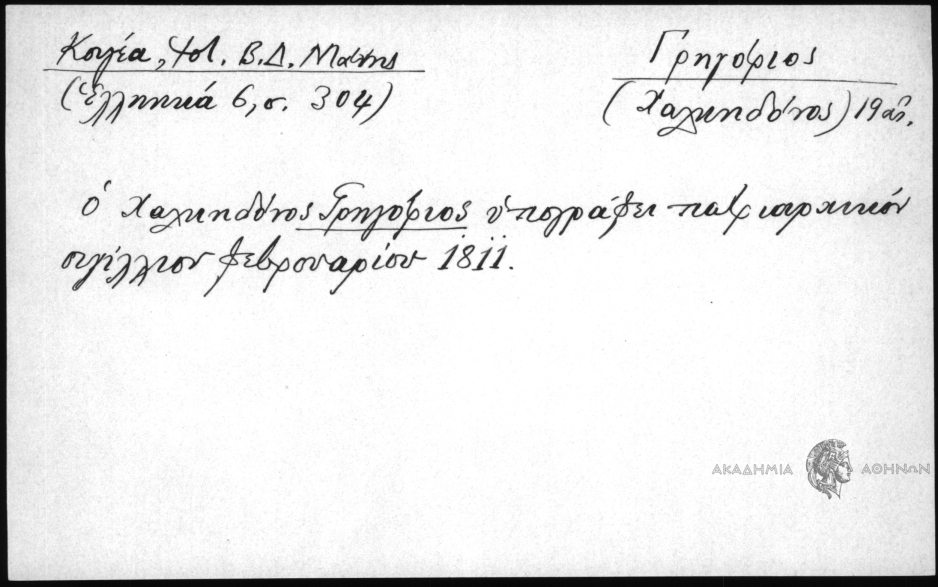 Κουγέα, Ἱστ. Β.Δ. Μάνης
(Ἑλληνικά 6, σ. 304)
Γρηγόριος
(Χαλκηδόνος) 19 αἰ.
ὁ Χαλκηδόνος Γρηγόριος ὑπογράφει πατριαρχικόν
σιγίλλιον φεβρουαρίου 1811.
ΑΚΑΔΗΜΙΑ ΑΘΗΝΩΝ